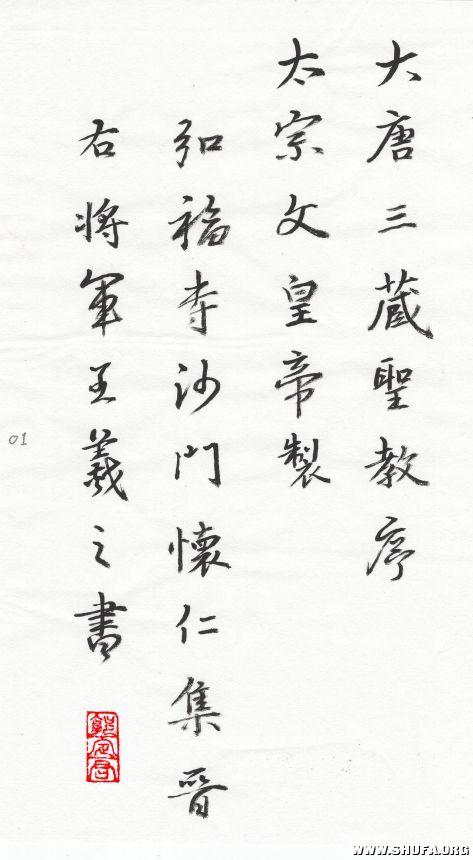 大唐三藏聖教序
太宗文皇帝製
弘福寺沙門懷仁集晉
右將軍王羲之書
01
WWW.SHUFA.ORG